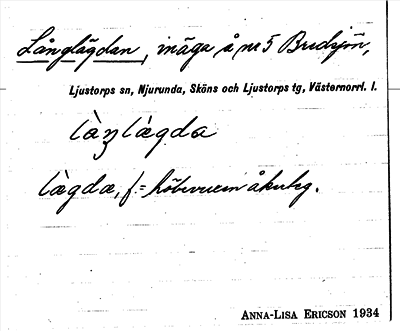 Långlägdan, inäga å nr 5 Bredsjön,
Ljustorps sn, Njurunda, Sköns och Ljustorps tg, Västernorrl. l.
làŋlàgda
làgda, f. =
Anna-Lisa Ericson 1934